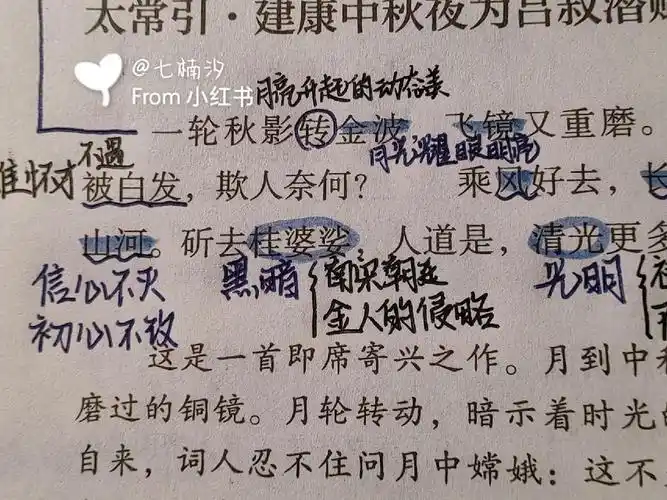 太常引·建康中秋夜为吕叔潜赋
@七楠汐
From 小红书
月亮升起的动态美
一轮秋影转金波 飞镜又重磨。
不遇
月光洗耀眼明亮
怀才
被白发，欺人奈何？ 乘风好去，长
山河。斫去桂婆娑 人道是，清光更多
信心不灭
黑暗
南宋朝廷
光明
初心不改
金人的侵略
这是一首即席寄兴之作。月到中秋
磨过的铜镜。月轮转动，暗示着时光的
自来，词人忍不住问月中嫦娥：这不